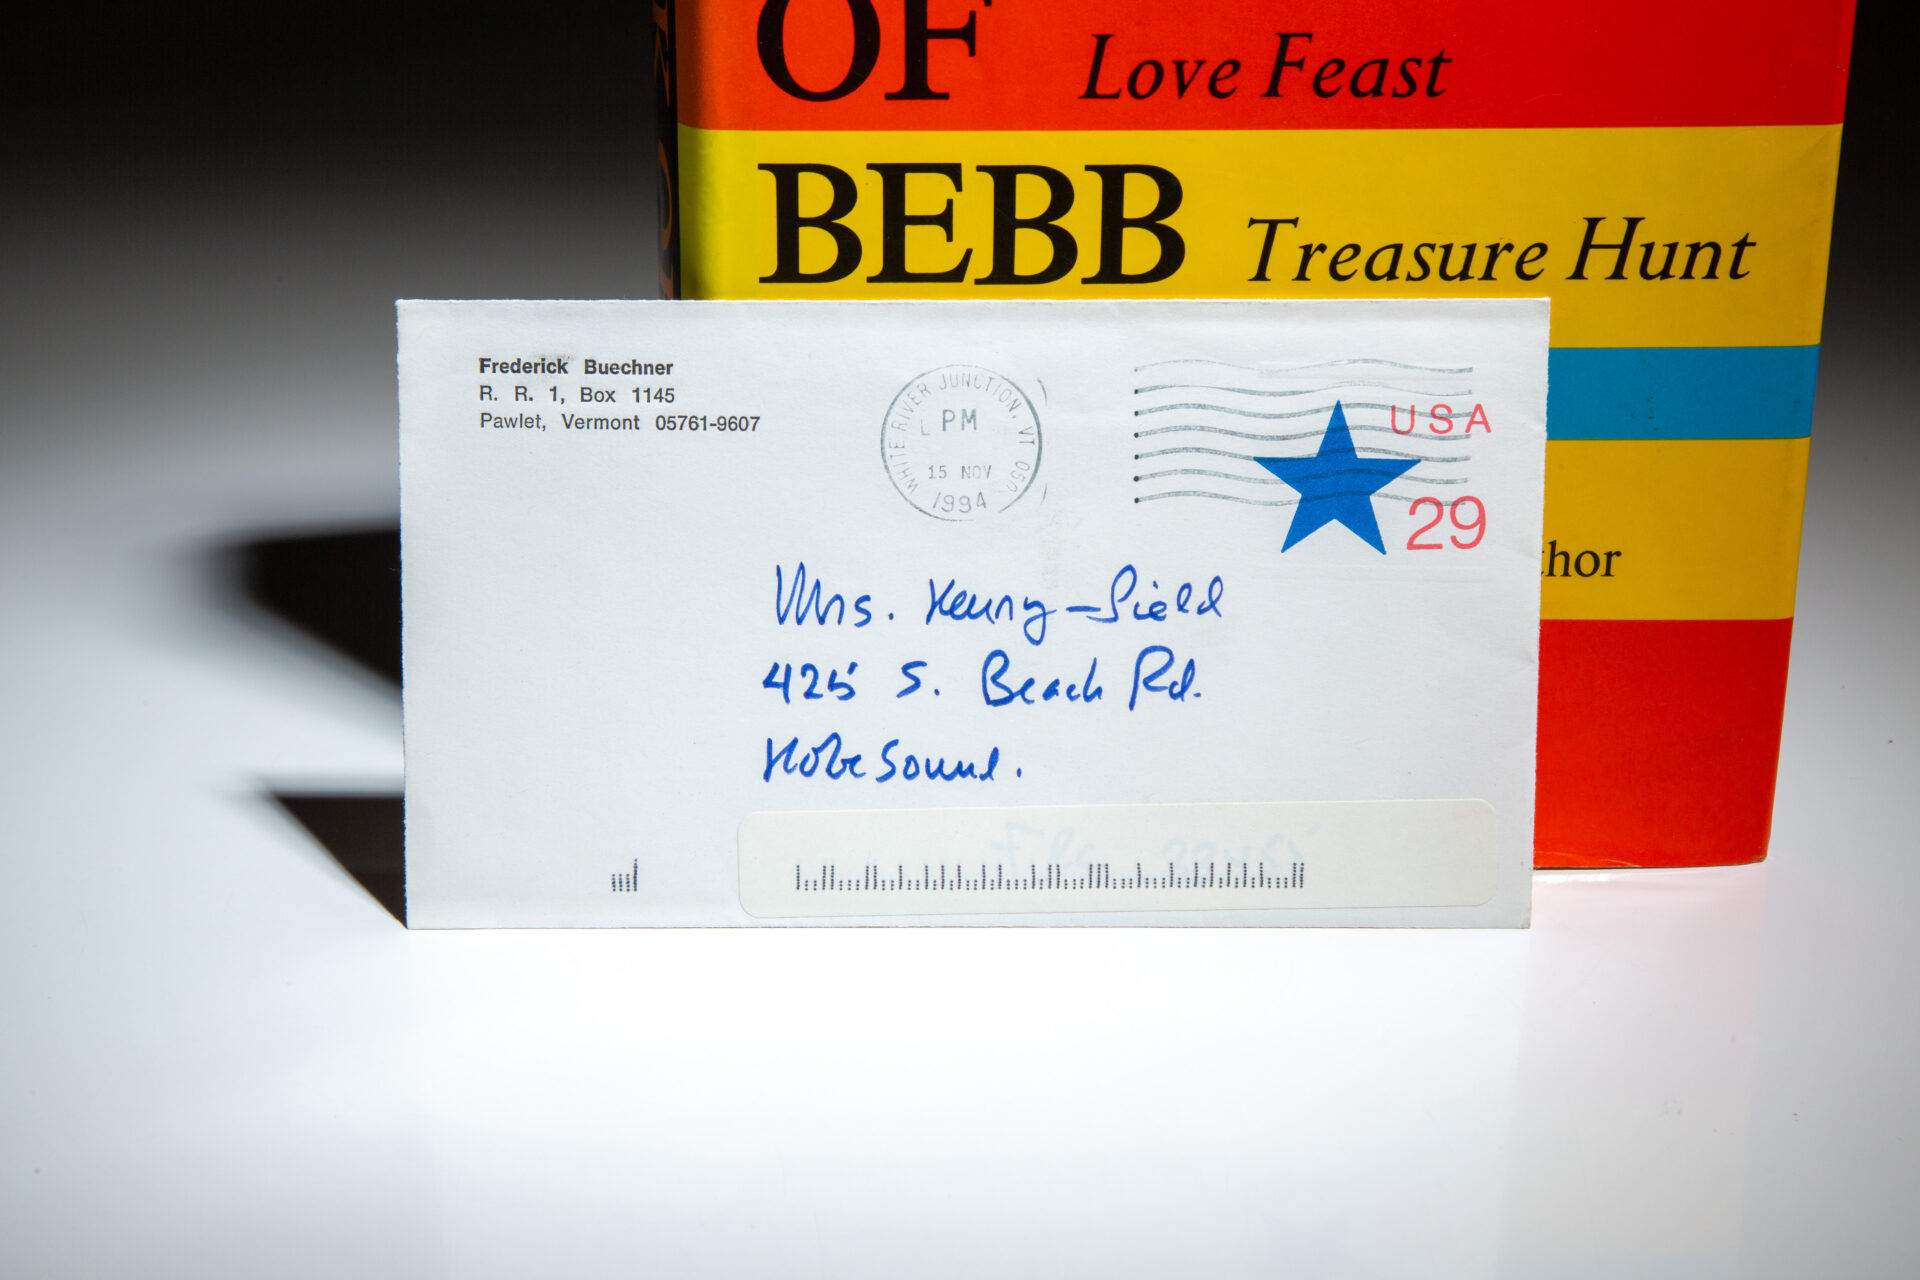 OF Love Feast
BEBB Treasure Hunt
thor
Frederick Buechner
R. R. 1, Box 1145
Pawlet, Vermont 05761-9607
WHITE RIVER JUNCTION, VT 050
PM
15 NOV
1994
USA
29
Mrs.
425 S. Beach Rd.
Hobe Sound.